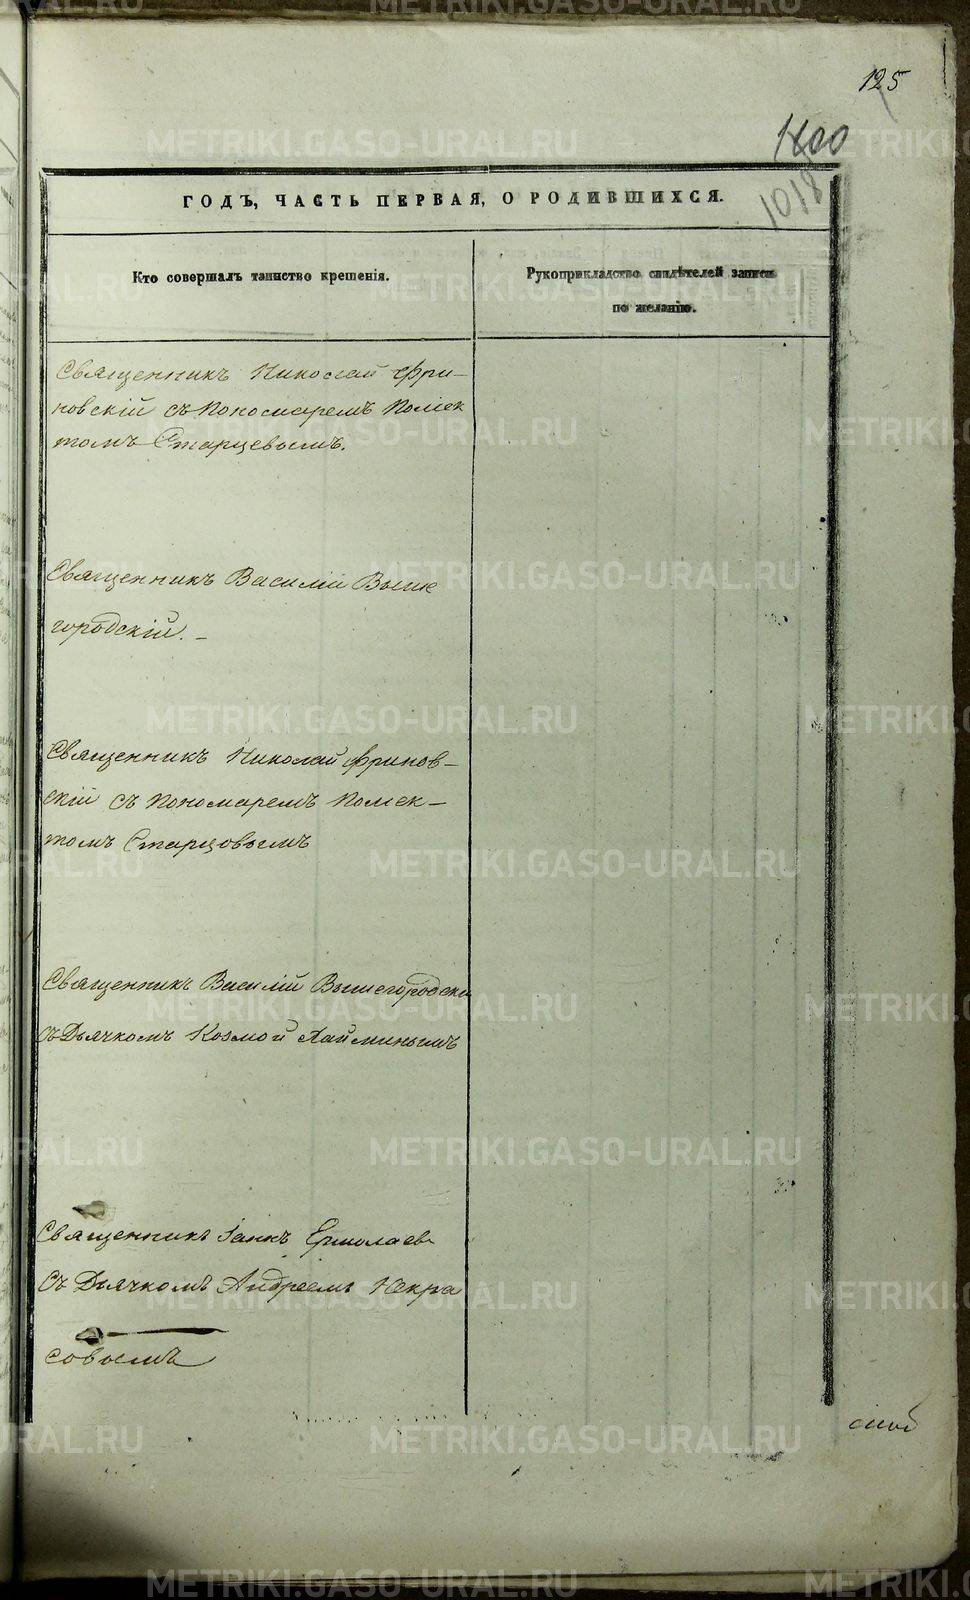 125
1800
1018
ГОДЪ, ЧАСТЬ ПЕРВАЯ, О РОДИВШИХСЯ.
Кто совершалъ таинство крещенія.
Рукоприкладство свидѣтелей записи
по желанію.
Священникъ Николай Фри-
новскій съ Пономаремъ Полiек
томъ Старцевымъ.
Священникъ Василій Выше
городскій.
Священникъ Николай Фринов-
скій съ Пономаремъ Полiек-
томъ Старцовымъ
Священникъ Василій Вышегородски
съ Дьячкомъ Козмой
Священникъ Іаннъ Ермолаевъ
Съ Дьячкомъ Андреемъ Некра
совымъ
METRIKI.GASO-URAL.RU